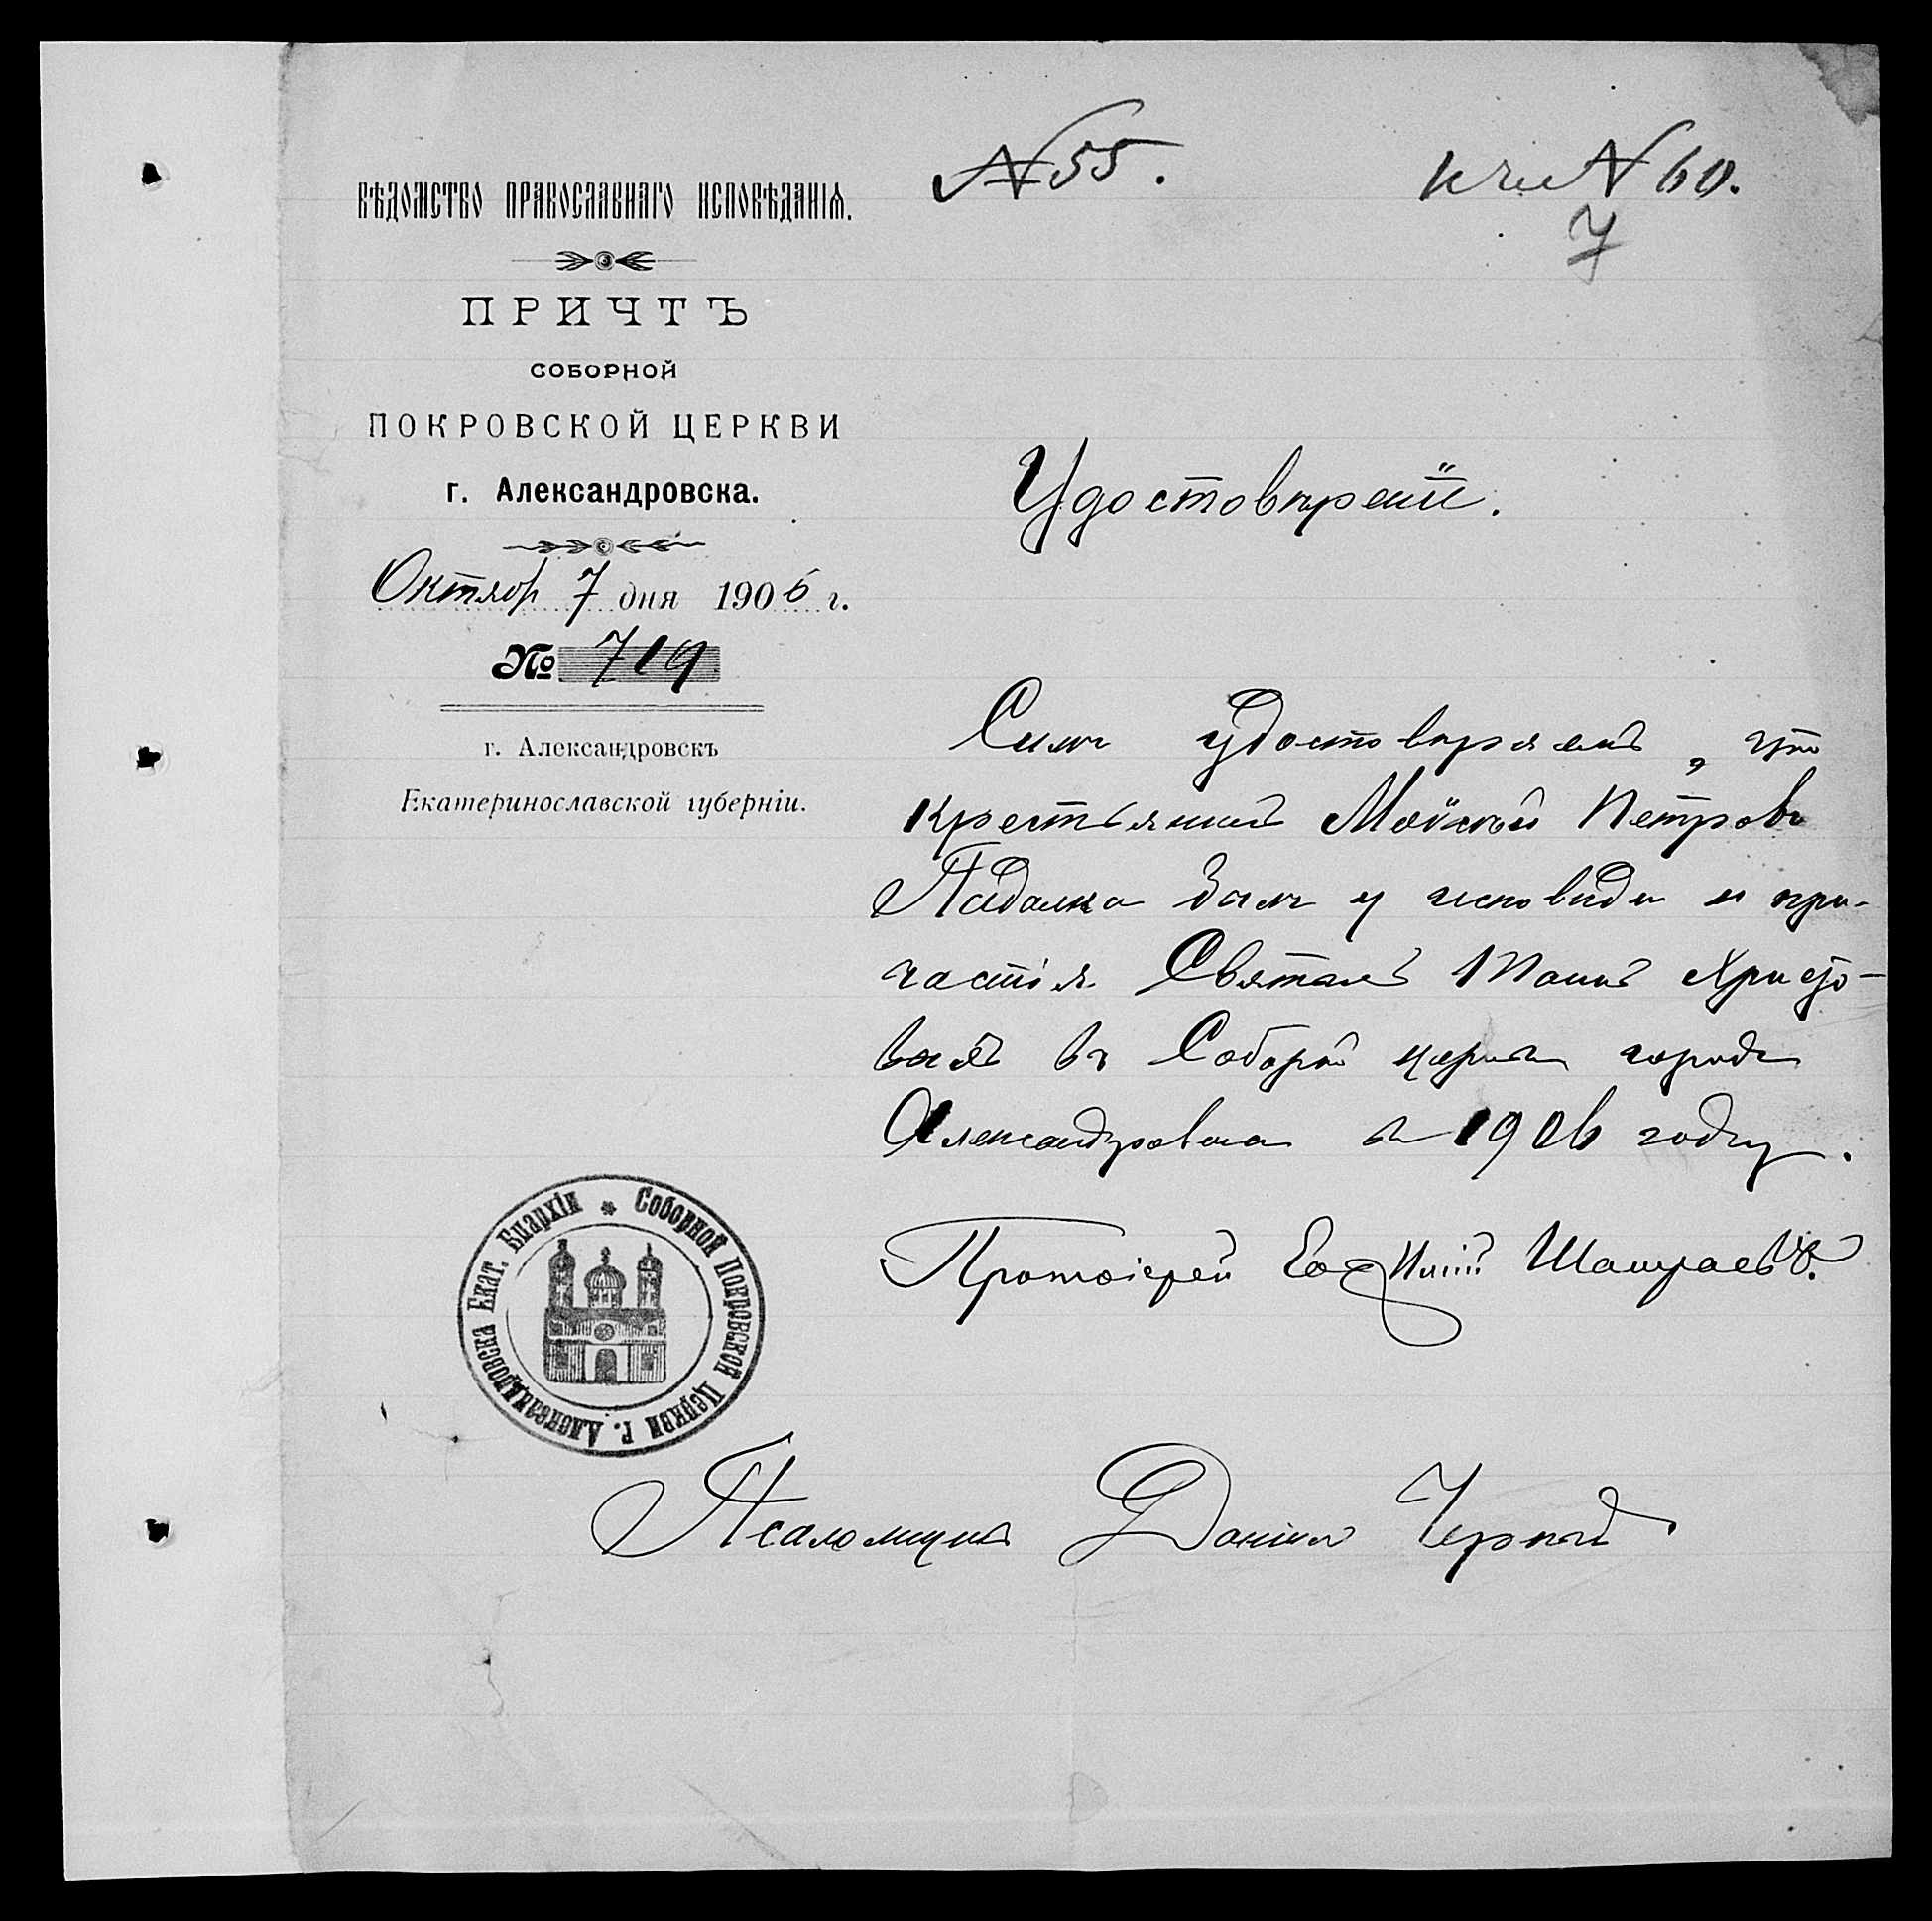 № 55.
к № 60.
7
ВѢДОМСТВО ПРАВОСЛАВНАГО ИСПОВѢДАНІЯ.
ПРИЧТЪ
СОБОРНОЙ
ПОКРОВСКОЙ ЦЕРКВИ
г. Александровска.
Октябр 7 дня 1906 г.
№ 719
г. Александровскъ
Екатеринославской губерніи.
Удостовѣреніе.
Симъ удостовѣряемъ, что
крестьянинъ Мойсей Петровъ
Падалка былъ у исповѣди и при-
частія Святыхъ Таинъ Христо-
выхъ въ Соборной церкви города
Александровска въ 1906 году.
Протоіерей Шашраевъ.
Псаломщикъ Даніилъ
Соборной Покровской Церкви г. Александровска Екат. Епархіи